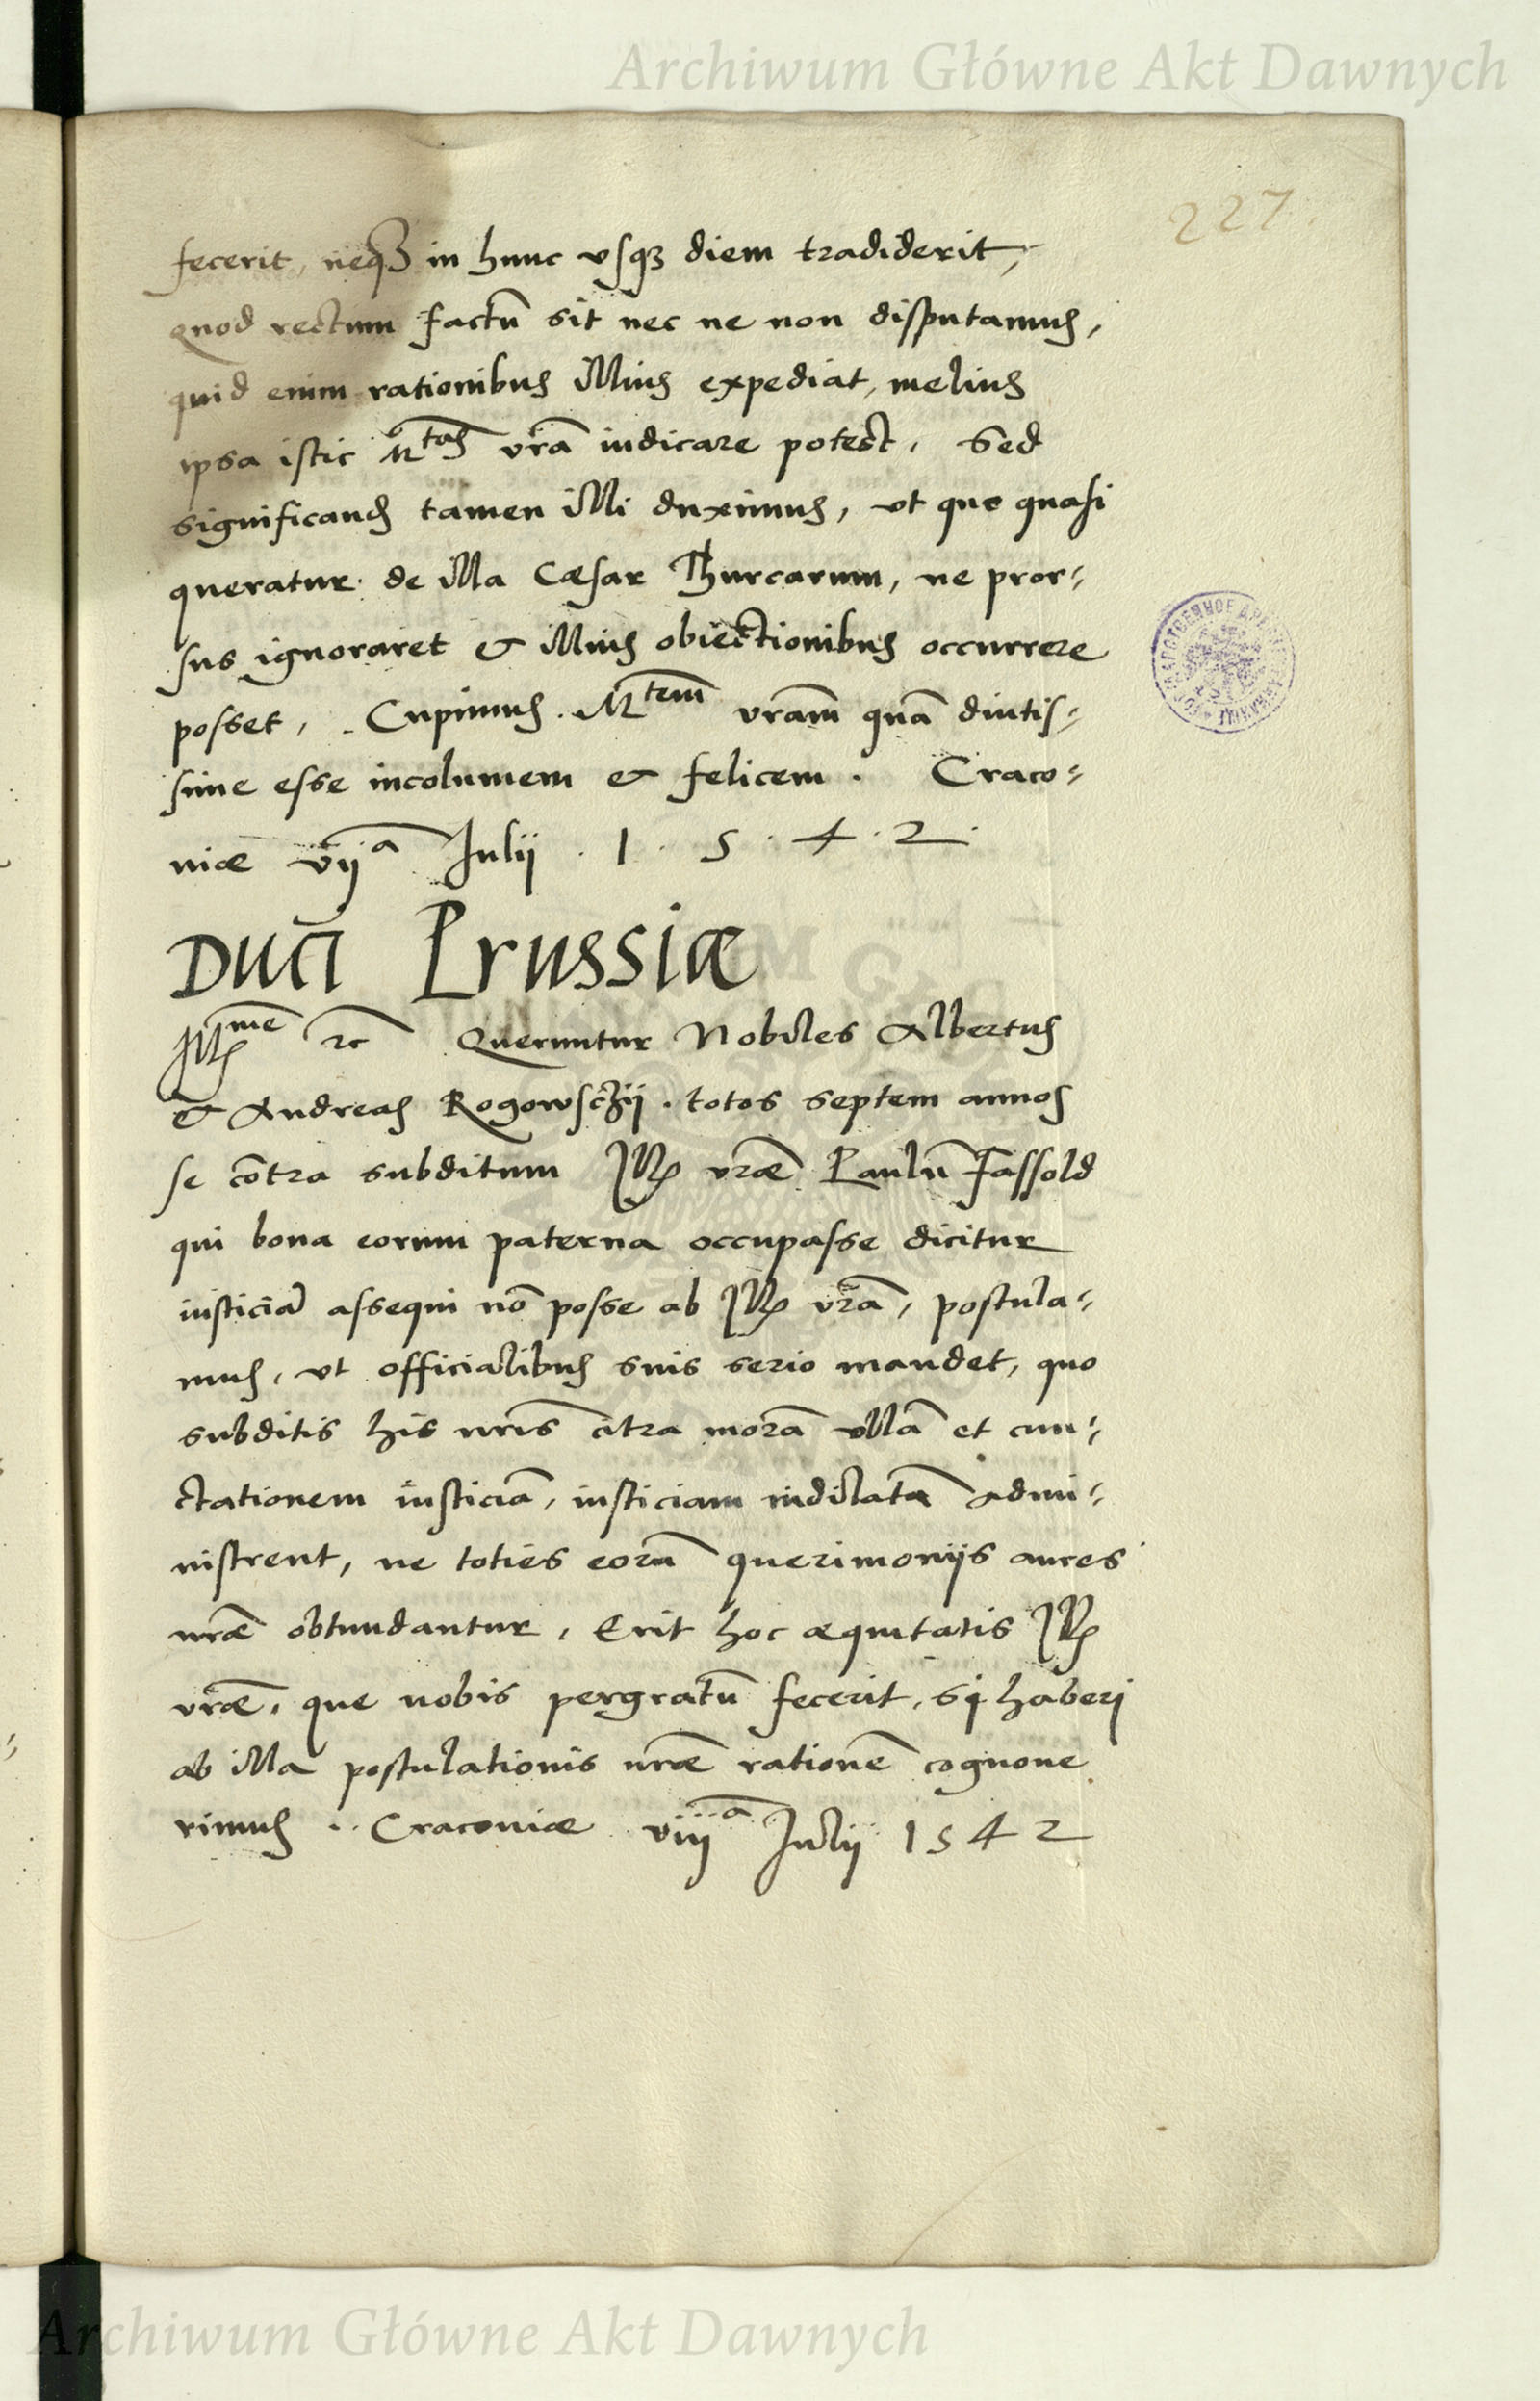 Archiwum Główne Akt Dawnych
227
fecerit, neqȝ in hunc vsqȝ diem tradiderit,
quod rectum factū sit nec ne non disputamus,
quid enim rationibus illius expediat, melius
ipsa istic Mtas vrā iudicare potest, Sed
significandū tamen illi duximus, vt que quasi
queratur de illa Cæsar Thurcarum, ne pror-
sus ignoraret & illius obiectionibus occurrere
posset, Cupimus Mtem vram̄ quā diutis-
sime esse incolumem & felicem. Craco-
niæ vija Julij . 1 . 5 . 4 . 2 .
Duci Prussiæ
Illme ꝛc Queruntur Nobiles Albertus
& Andreas Rogowsczij . totos septem annos
se cōtra subditum Ill vrǣ Paulū Fassold
qui bona eorum paterna occupasse dicitur
iusticiā assequi nō posse ab Ill vrā, postula-
mus, vt officialibus suis serio mandet, quo
subditis his nrīs citra morā vllā et cun-
ctationem iusticiā, iusticiam indilatā admi-
nistrent, ne toties eorū querimonijs aures
nrǣ obtundantur, Erit hoc æquitatis Ill
vrǣ, que nobis pergratū fecerit, si haberi
ab illa postulationis nrǣ rationē cognoue
rimus . Cracouiæ viija Julij 1542
Archiwum Główne Akt Dawnych